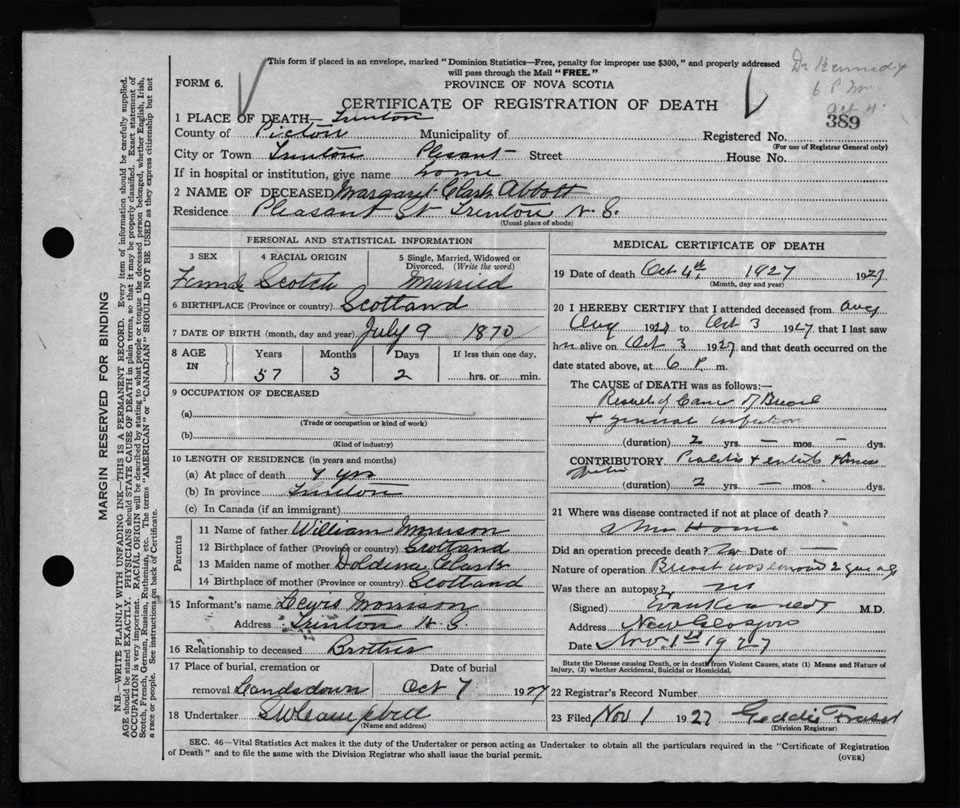 This form if placed in an envelope, marked "Dominion Statistics—Free, penalty for improper use $300," and properly addressed
will pass through the Mail "FREE."
FORM 6.
PROVINCE OF NOVA SCOTIA
Dr Kennedy
6 P M
Oct 4
CERTIFICATE OF REGISTRATION OF DEATH
389
1 PLACE OF DEATH— Trenton
County of Pictou Municipality of Registered No.
(For use of Registrar General only)
City or Town Trenton Plesant Street House No.
If in hospital or institution, give name home
2 NAME OF DECEASED Margaret Clark Abbott
Residence Pleasant St Trenton N. S.
(Usual place of abode)
PERSONAL AND STATISTICAL INFORMATION
3 SEX 4 RACIAL ORIGIN 5 Single, Married, Widowed or
Divorced. (Write the word)
Female Scotch Married
6 BIRTHPLACE (Province or country) Scotland
7 DATE OF BIRTH (month, day and year) July 9 1870
8 AGE IN Years Months Days If less than one day,
57 3 2 hrs. or min.
9 OCCUPATION OF DECEASED
(a)
(Trade or occupation or kind of work)
(b)
(Kind of industry)
10 LENGTH OF RESIDENCE (in years and months)
(a) At place of death yrs
(b) In province Trenton
(c) In Canada (if an immigrant)
Parents
11 Name of father William Morrison
12 Birthplace of father (Province or country) Scotland
13 Maiden name of mother Doldina Clark
14 Birthplace of mother (Province or country) Scotland
15 Informant's name Lewis Morrison
Address Trenton N S
16 Relationship to deceased Brother
17 Place of burial, cremation or Date of burial
removal Landsdown Oct 7 1927
18 Undertaker S W Campbell
(Name and address)
MEDICAL CERTIFICATE OF DEATH
19 Date of death Oct 4th 1927 1927
(Month, day and year)
20 I HEREBY CERTIFY that I attended deceased from Aug
Aug 1927 to Oct 3 1927 that I last saw
her alive on Oct 3 1927 and that death occurred on the
date stated above, at 6 P. m.
The CAUSE of DEATH was as follows:—
Result of Cancer of Breast
+ general infection
(duration) 2 yrs. — mos. — dys.
CONTRIBUTORY
(duration) 2 yrs. — mos. — dys.
21 Where was disease contracted if not at place of death?
Home
Did an operation precede death? Date of —
Nature of operation Breast was removed 2 years ago
Was there an autopsy? no
(Signed) Evan Kennedy M.D.
Address New Glasgow
Date Nov. 1st 1927
State the Disease causing Death, or in death from Violent Causes, state (1) Means and Nature of
Injury, (2) whether Accidental, Suicidal or Homicidal.
22 Registrar's Record Number
23 Filed Nov 1 1927 Geddie Fraser
(Division Registrar)
SEC. 46—Vital Statistics Act makes it the duty of the Undertaker or person acting as Undertaker to obtain all the particulars required in the "Certificate of Registration
of Death" and to file the same with the Division Registrar who shall issue the burial permit.
(OVER)
MARGIN RESERVED FOR BINDING
N.B.—WRITE PLAINLY WITH UNFADING INK—THIS IS A PERMANENT RECORD. Every item of information should be carefully supplied.
AGE should be stated EXACTLY. PHYSICIANS should STATE CAUSE OF DEATH in plain terms, so that it may be properly classified. Exact statement of
OCCUPATION is very important. RACIAL ORIGIN will be described by stating to what people or tongue the deceased person belonged, whether English, Irish,
Scotch, French, German, Russian, Ruthenian, etc. The terms "AMERICAN" or "CANADIAN" SHOULD NOT BE USED as they express citizenship but not
a race or people. See instructions on back of Certificate.